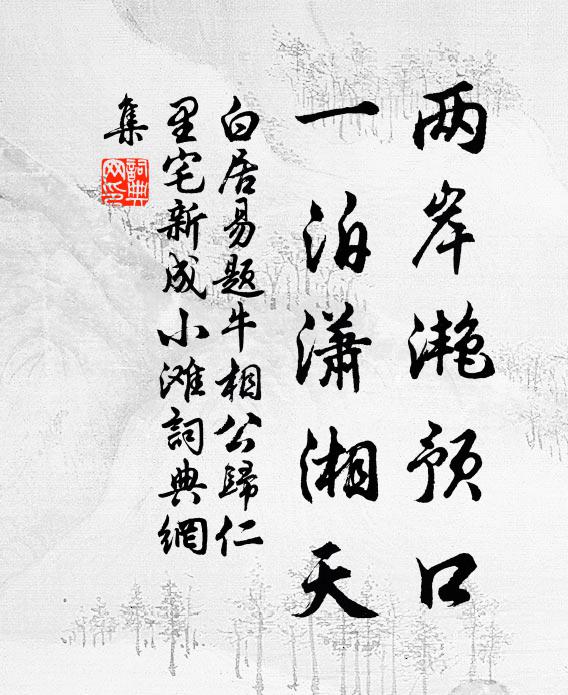 两岸滟预口
一泊潇湘天
白居易题牛相公歸仁
里宅新成小滩詞典網
集
詞典
网印